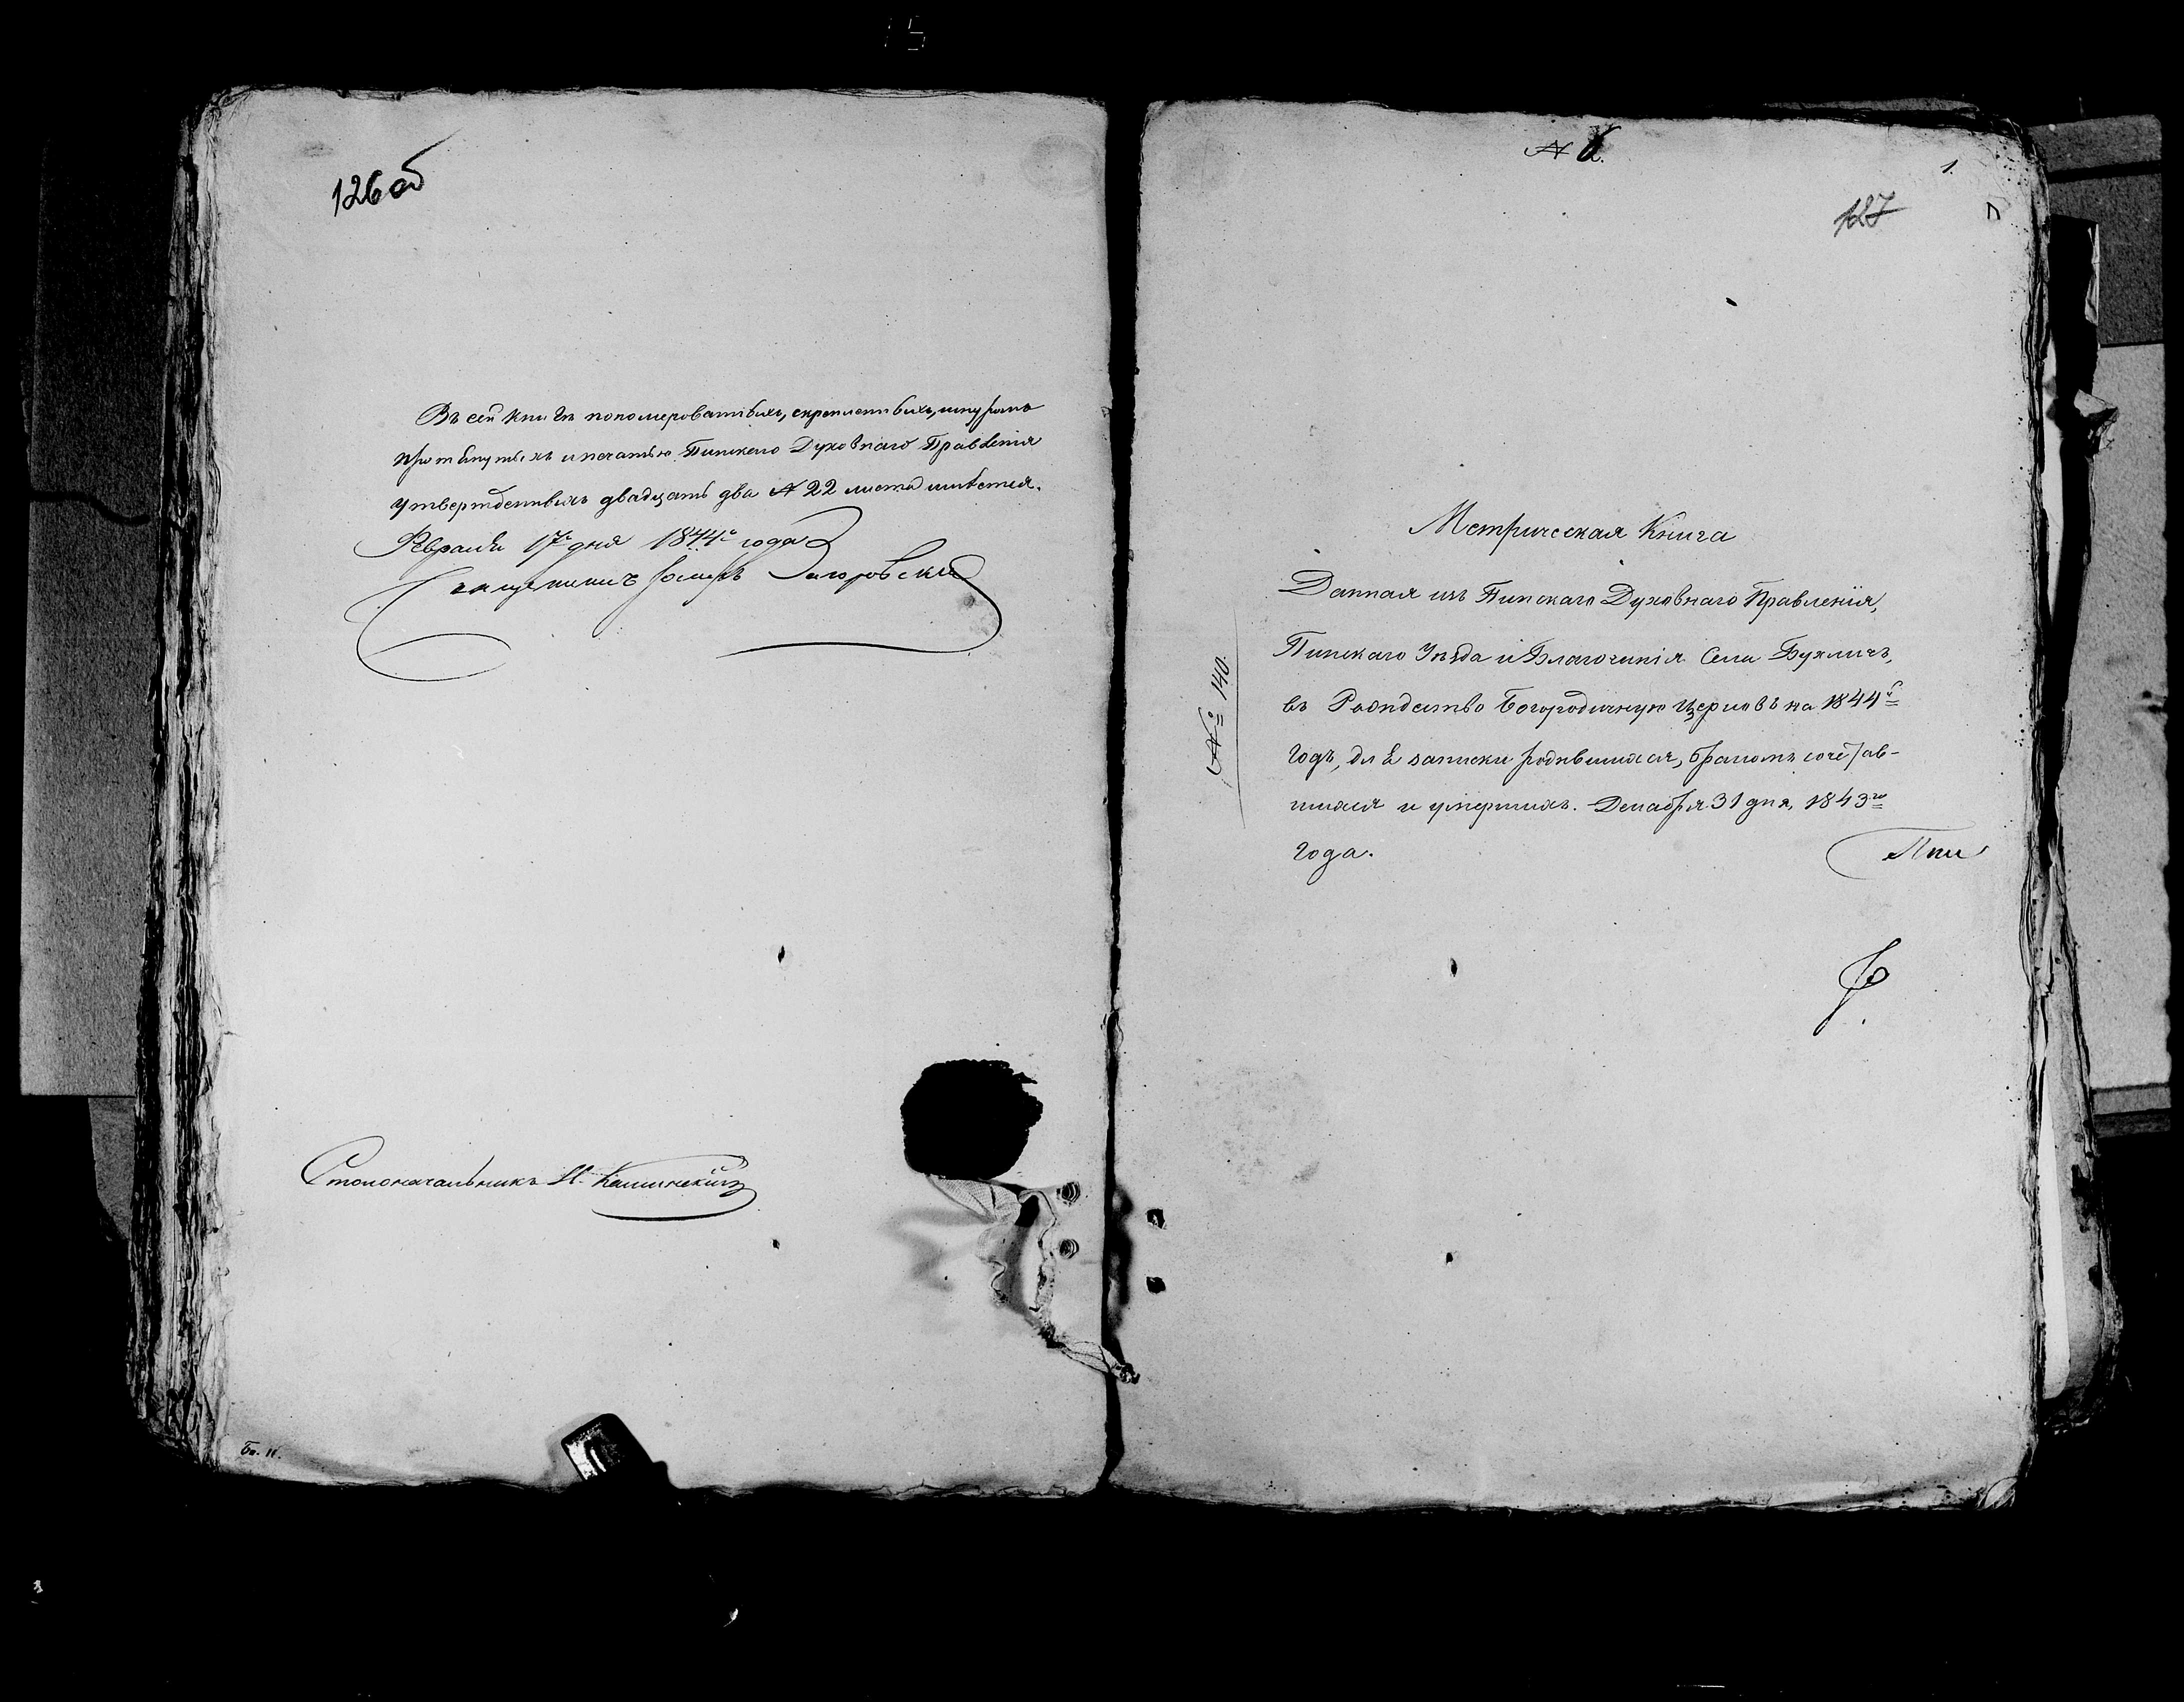 126 об
Въ сей книгѣ пономерованныхъ, скрепленныхъ, шнуромъ
протянутыхъ и печатью Пинскаго Духовнаго Правленія
утвержденныхъ двадцать два № 22 листа имѣется.
Февраля 17 дня 1844 года
Священникъ Іосифъ Загоровскій
Столоначальникъ Калинскій
№ 6.
1.
127
Метрическая Книга
Данная изъ Пинскаго Духовнаго Правленія,
Пинскаго Уѣзда и Благочинія Села Бухличъ,
въ Рождество Богородичную Церковь на 1844й
годъ, для записки родившихся, бракомъ сочетав-
шихся и умершихъ. Декабря 31 дня, 1843го
года.
Пин
№ 140.